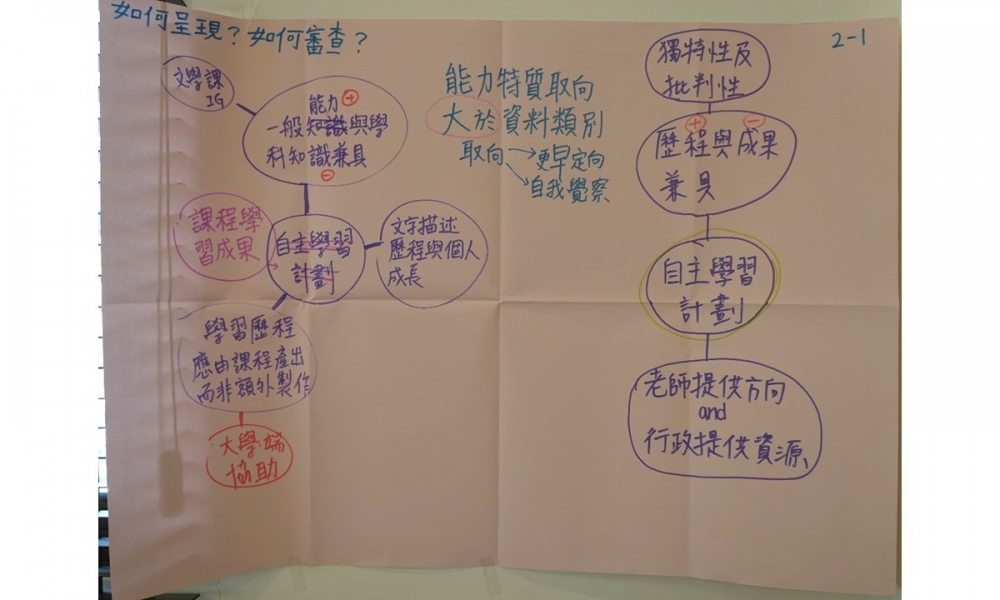 如何呈現？如何審查？
2-1
文學課
IG
能力 +
一般知識與學
科知識兼具
-
課程學
習成果
自主學習
計劃
文字描述
歷程與個人
成長
學習歷程
應由課程產出
而非額外製作
大學端
協助
能力特質取向
大於資料類別
取向→更早定向
→自我覺察
獨特性及
批判性
+ -
歷程與成果
兼具
自主學習
計劃
老師提供方向
and
行政提供資源、